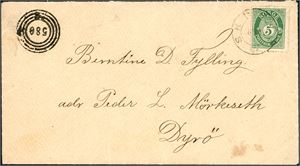 580
NORGE
5
Berntine D. Tylling
adr Peder L. Mörkeseth
Dyrö